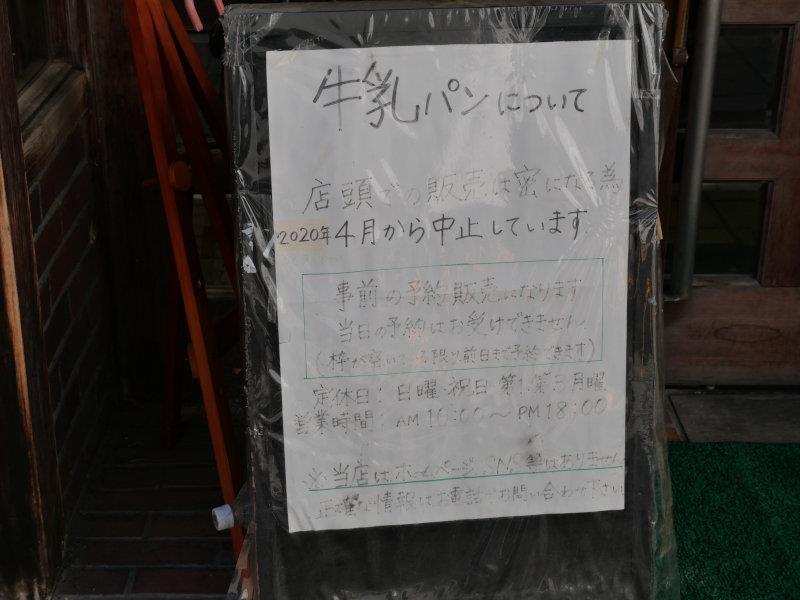 牛乳パンについて
店頭での販売は密になる為
2020年4月から中止しています
事前の予約販売になります
当日の予約はお受けできません
(枠が空いている限り前日まで予約できます)
定休日：日曜・祝日 第1.第3月曜
営業時間：AM10:00〜PM18:00
※当店はホームページ、SNS等はありません
正確な情報はお電話でお問い合わせ下さい